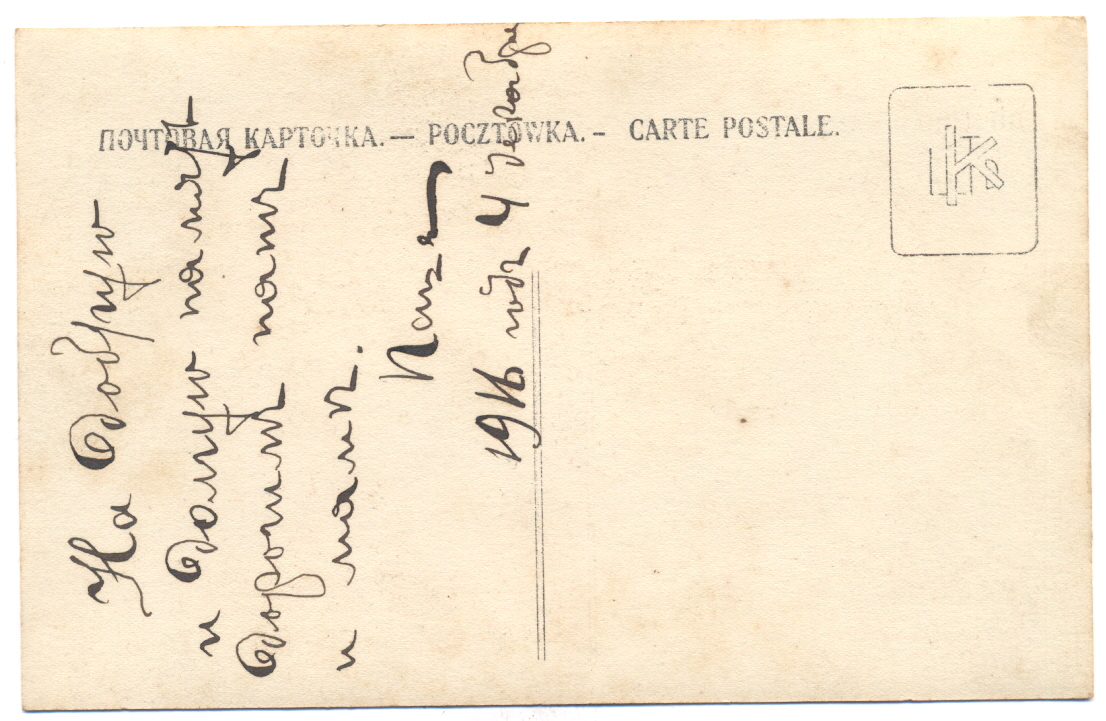 ПОЧТОВАЯ КАРТОЧКА. — POCZTÓWKA. – CARTE POSTALE.
На добрую
и долгую память
дорогим папѣ
и мамѣ.
1916 годъ 4 декабря